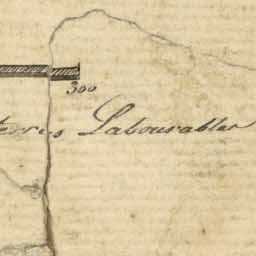 300
terres Labourables